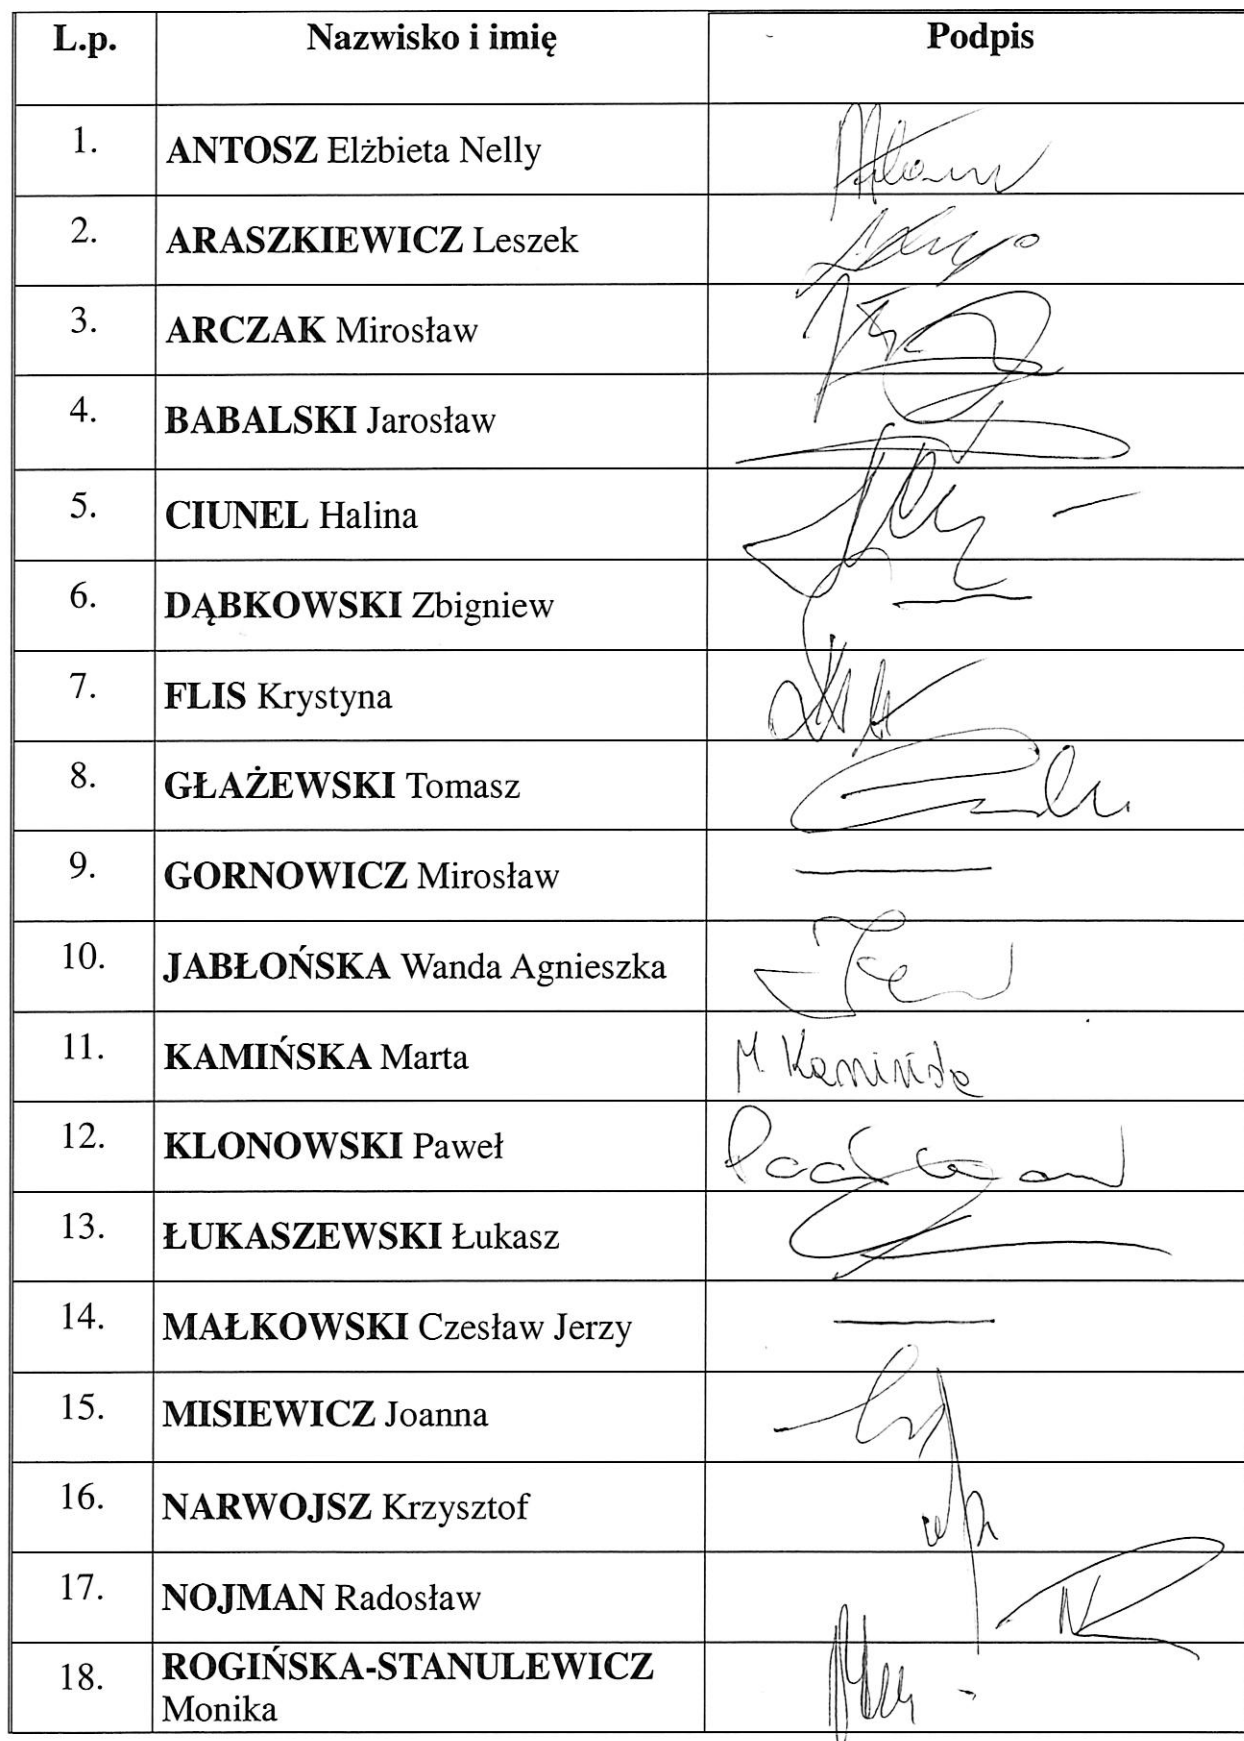 L.p. Nazwisko i imię Podpis
1. ANTOSZ Elżbieta Nelly
2. ARASZKIEWICZ Leszek
3. ARCZAK Mirosław
4. BABALSKI Jarosław
5. CIUNEL Halina
6. DĄBKOWSKI Zbigniew
7. FLIS Krystyna
8. GŁAŻEWSKI Tomasz
9. GORNOWICZ Mirosław
10. JABŁOŃSKA Wanda Agnieszka
11. KAMIŃSKA Marta M. Kamińska
12. KLONOWSKI Paweł
13. ŁUKASZEWSKI Łukasz
14. MAŁKOWSKI Czesław Jerzy
15. MISIEWICZ Joanna
16. NARWOJSZ Krzysztof
17. NOJMAN Radosław
18. ROGIŃSKA-STANULEWICZ
Monika